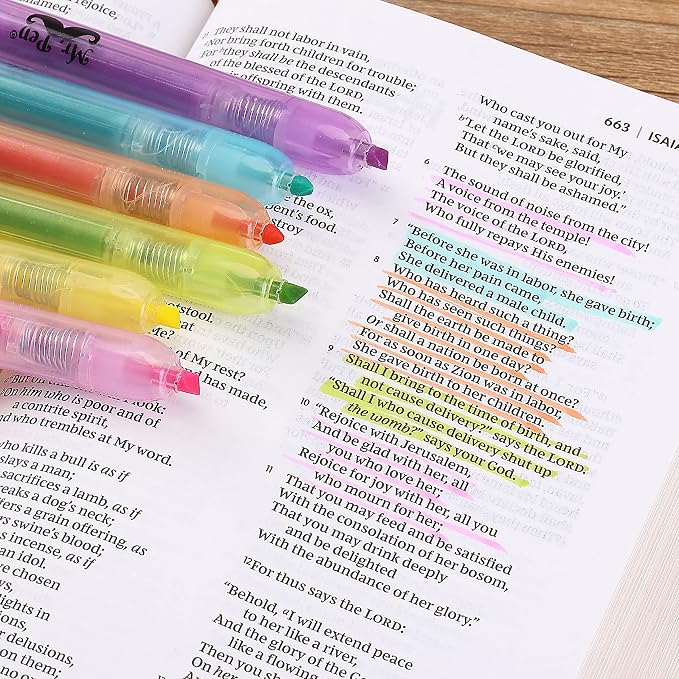 rejoice,
Mr. Pen®
21 They shall not labor in vain,
Nor bring forth children for trouble;
For they shall be the descendants
of the blessed of the LORD,
offspring with them.
the ox,
dent's food.
footstool.
Me?
of My rest?
has made,
look:
On him who is poor and of
a contrite spirit,
And who trembles at My word.
who kills a bull is as if
slays a man;
sacrifices a lamb, as if
breaks a dog's neck;
offers a grain offering, as
swine's blood;
incense, as if
an idol.
chosen
delights in
delusions,
on them;
663 | ISAIA
Who cast you out for My
name's sake, said,
b“Let the LORD be glorified,
That cwe may see your joy.’
But they shall be ashamed.”
6 The sound of noise from the city!
A voice from the temple!
The voice of the LORD,
Who fully repays His enemies!
7 “Before she was in labor, she gave birth;
Before her pain came,
She delivered a male child.
8 Who has heard such a thing?
Who has seen such things?
Shall the earth be made to
give birth in one day?
Or shall a nation be born at once?
For as soon as Zion was in labor,
She gave birth to her children.
9 Shall I bring to the time of birth, and
not cause delivery?” says the LORD.
“Shall I who cause delivery shut up
the womb?” says your God.
10 “Rejoice with Jerusalem,
And be glad with her, all
you who love her;
Rejoice for joy with her, all you
who mourn for her;
11 That you may feed and be satisfied
With the consolation of her bosom,
That you may drink deeply
and be delighted
With the abundance of her glory.”
12 For thus says the LORD:
“Behold, aI will extend peace
to her like a river,
And the glory of the
like a flowing
Then you sha
On her